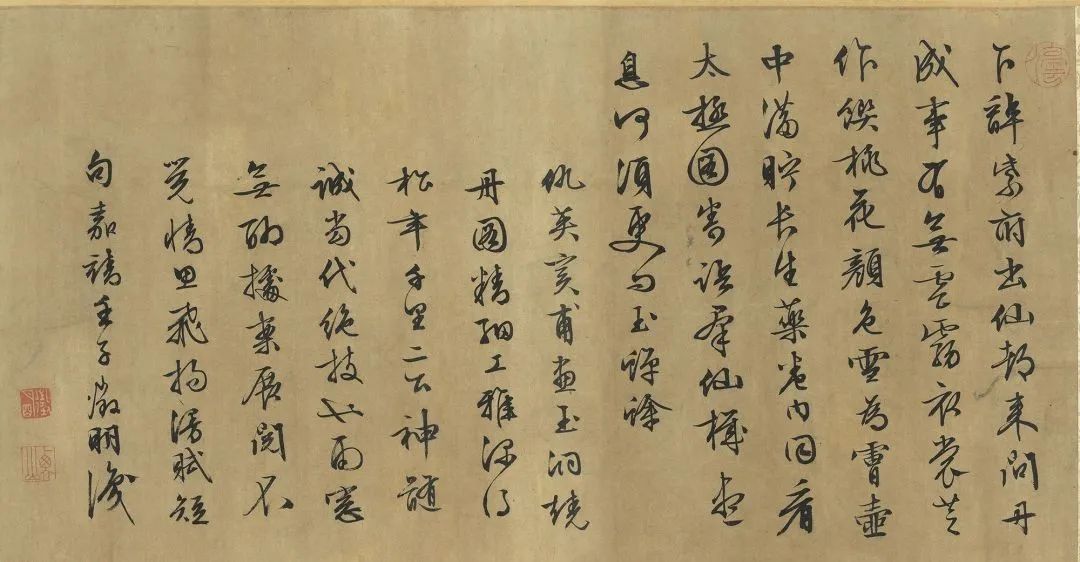 乍辭紫府出仙都來問丹
成事有無雲霧衣裳芝
作饌桃花顏色雪為膚壺
中滿貯長生藥卷內同看
太極圖寄語羣仙權憩
息何須更向玉蟾蜍
仇英實甫畫玉洞燒
丹圖精細工雅深得
松年千里二公神髓
誠當代絕技也雨窓
無聊據案展閱不
覺情思飛揚漫賦短
句嘉靖壬子徵明識